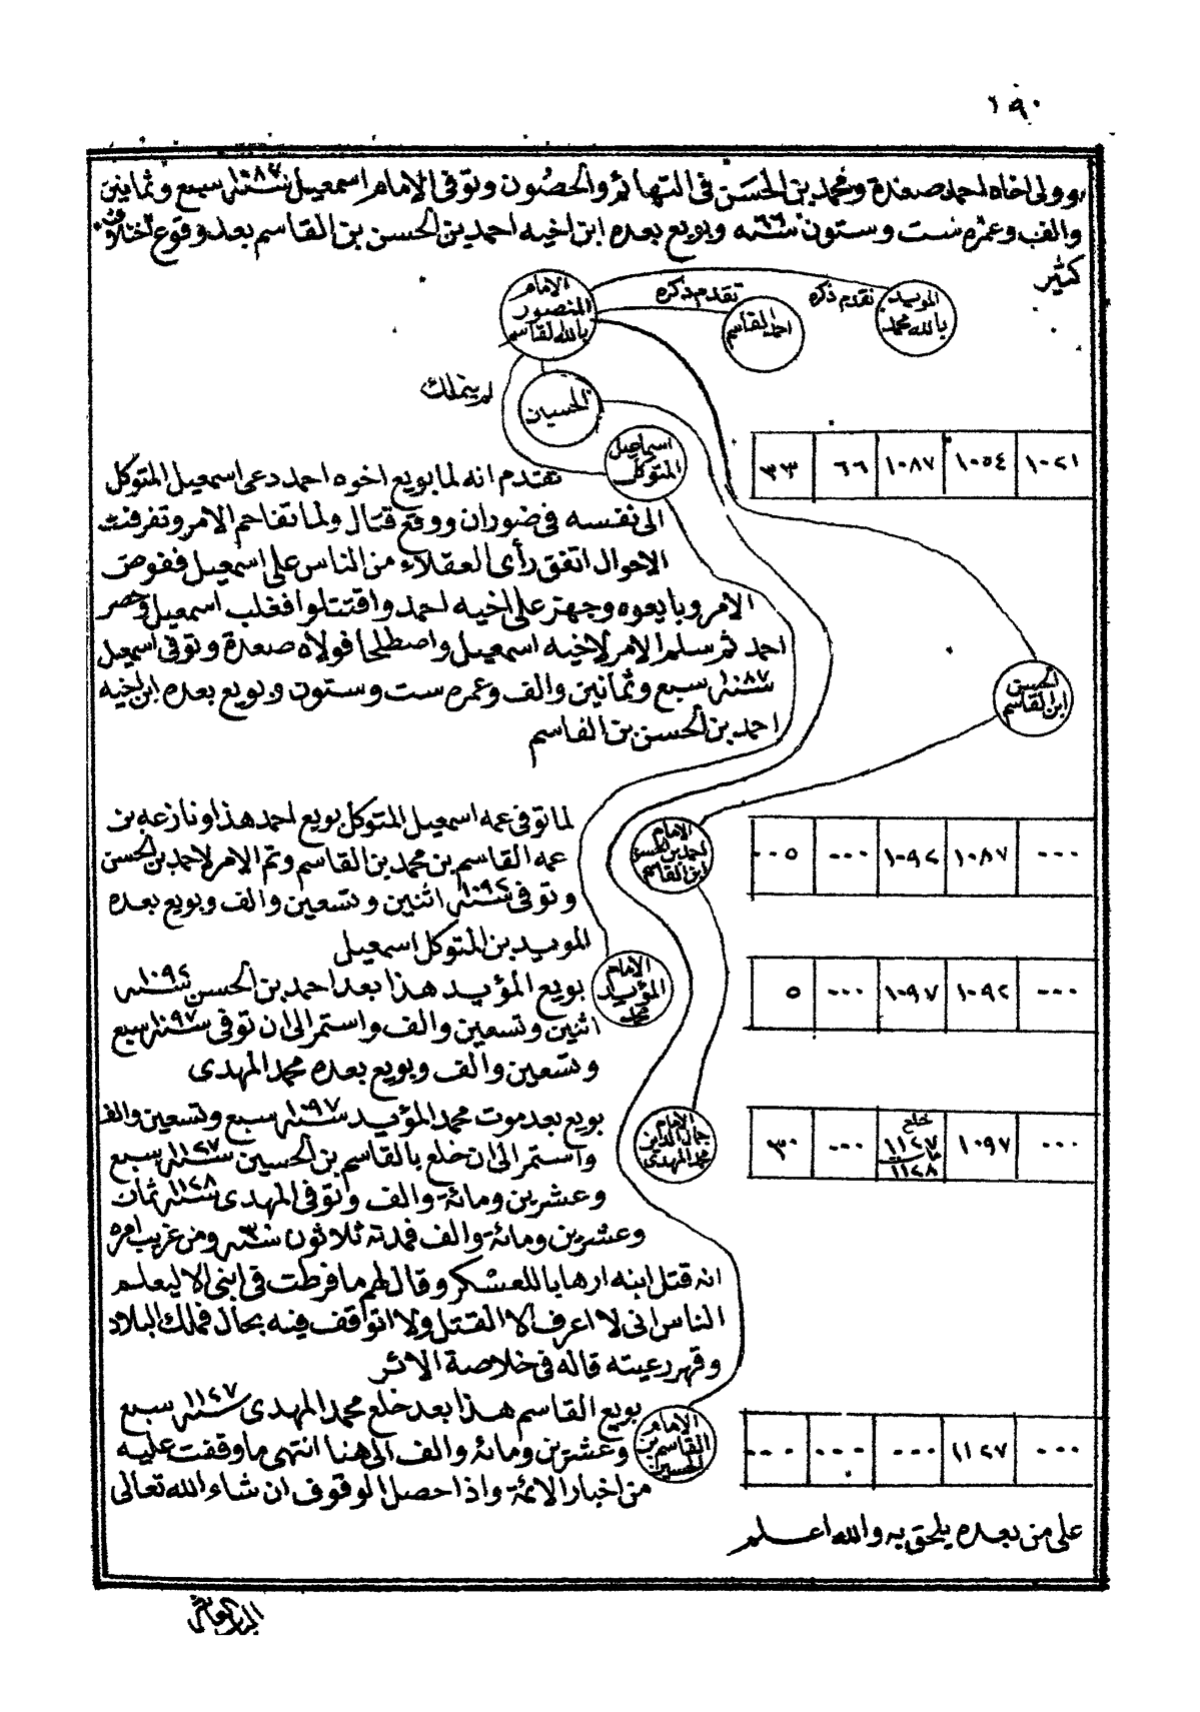 ١٩٠
وولى اخاه احمد صعدة ومحمد بن الحسن في التهائم والحصون وتوفى الامام اسمعيل سنة ١٠٨٧ سبع وثمانين
والف وعمره ست وستون سنه ٦٦ وبويع بعده ابن اخيه احمد بن الحسن بن القاسم بعد وقوع اختلاف
كثير
الامام المنصور بالله القاسم
تقدم ذكره
احمد القاسم
تقدم ذكره
المويد بالله محمد
لم يتملك
الحسين
اسماعيل المتوكل
١٠٢١ ١٠٥٤ ١٠٨٧ ٦٦ ٣٣
تقدم انه لما بويع اخوه احمد دعى اسمعيل المتوكل
الى نفسه في ضوران ووقع قتال ولما تفاحم الامر وتفرقت
الاحوال اتفق رأى العقلاء من الناس على اسمعيل ففوض
الامر وبايعوه وجهز على اخيه احمد واقتتلوا فغلب اسمعيل وحصر
احمد ثم سلم الامر لاخيه اسمعيل واصطلحا فولاه صعدة وتوفى اسمعيل
سنة ١٠٨٧ سبع وثمانين والف وعمره ست وستون وبويع بعده ابن اخيه
احمد بن الحسن بن القاسم
الحسن ابن القاسم
لما توفى عمه اسمعيل المتوكل بويع احمد هذا ونازعه بن
عمه القاسم بن محمد بن القاسم وتم الامر لاحمد بن الحسن
وتوفى سنة ١٠٩٢ اثنين وتسعين والف وبويع بعده
المويد بن المتوكل اسمعيل
الامام احمد بن الحسن ابن القاسم
٠٠٠ ١٠٨٧ ١٠٩٢ ٠٠٠ ٠٠٥
بويع المؤيد هذا بعد احمد بن الحسن سنة ١٠٩٢
اثنين وتسعين والف واستمر الى ان توفى سنة ١٠٩٧ سبع
وتسعين والف وبويع بعده محمد المهدى
الامام المؤيد محمد
٠٠٠ ١٠٩٢ ١٠٩٧ ٠٠٠ ٥
بويع بعد موت محمد المؤيد سنة ١٠٩٧ سبع وتسعين والف
واستمر الى ان خلع بالقاسم بن الحسين سنة ١١٢٧ سبع
وعشرين ومائة والف وتوفى المهدى سنة ١١٢٨ ثمان
وعشرين ومائة والف فمدته ثلاثون سنه ٣٠ ومن غريب امره
انه قتل ابنه ارهابا للعسكر وقال لهم ما فرطت في ابنى الا ليعلم
الناس انى لا اعرف الا القتل ولا اتواقف فيه بحال فملك البلاد
وقهر رعيته قاله في خلاصة الاثر
الامام جمال الدين محمد المهدى
٠٠٠ ١٠٩٧ خلع ١١٢٧ مات ١١٢٨ ٠٠٠ ٣٠
بويع القاسم هذا بعد خلع محمد المهدى سنة ١١٢٧ سبع
وعشرين ومائة والف الى هنا انتهى ما وقفت عليه
من اخبار الائمة واذا حصل الوقوف ان شاء الله تعالى
الامام القاسم بن الحسين
٠٠٠ ١١٢٧ ٠٠٠ ٠٠٠ ٠٠٠
على من بعده يلحق به والله اعلم
الباب العاشر